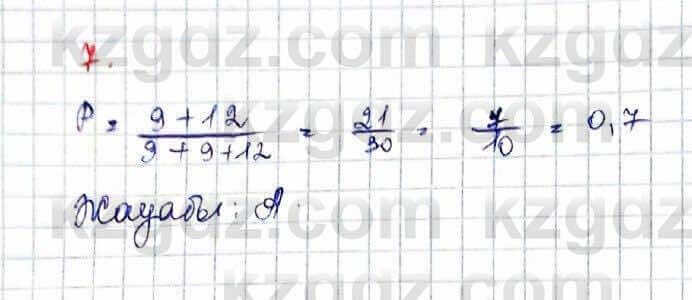 kzgdz.com kzgdz.com
7.
P = (9 + 12)/(9 + 9 + 12) = 21/30 = 7/10 = 0,7
kzgdz.com kzgdz.com
Жауабы: А.
kzgdz.com kzgdz.com